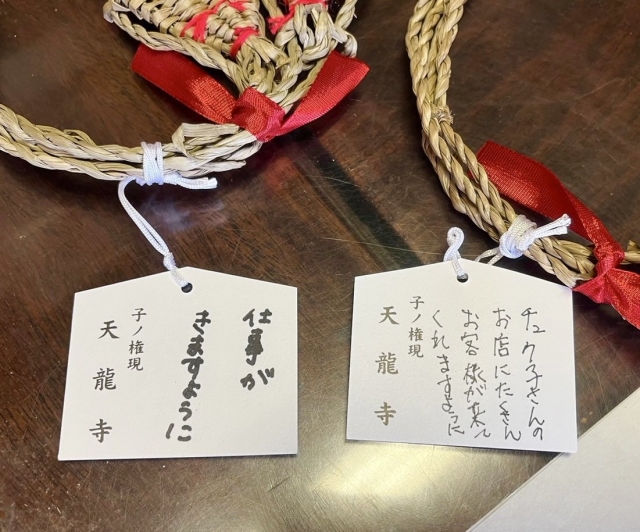 仕事が
きますように
子ノ権現
天龍寺
チュウ子さんの
お店にたくさん
お客様が来て
くれますように
子ノ権現
天龍寺